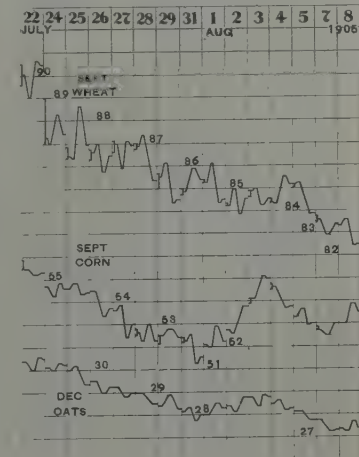 22 24 25 26 27 28 29 31 1 2 3 4 5 7 8
JULY AUG 1905
90 SEPT
89 WHEAT
88
87
86
85
84
83
82
SEPT
CORN
55
54
53
52
51
30
29
DEC
OATS 28
27